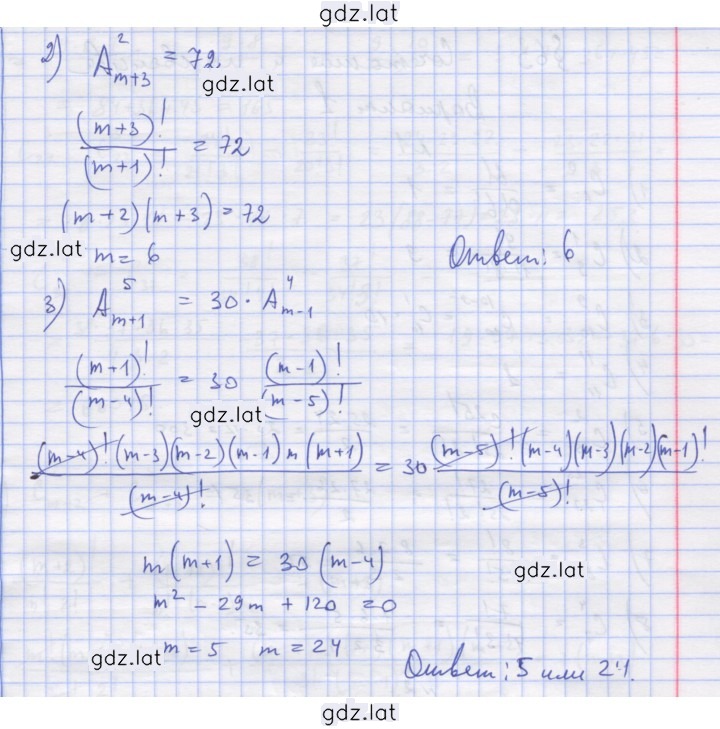 gdz.lat
2) A²ₘ₊₃ = 72
gdz.lat
(m+3)! / (m+1)! = 72
(m+2)(m+3) = 72
gdz.lat m = 6 Ответ: 6
3) A⁵ₘ₊₁ = 30 · A⁴ₘ₋₁
(m+1)! / (m-4)! = 30 (m-1)! / (m-5)!
gdz.lat
(m-4)!(m-3)(m-2)(m-1)m(m+1) / (m-4)! = 30 (m-5)!(m-4)(m-3)(m-2)(m-1)! / (m-5)!
m(m+1) = 30(m-4)
gdz.lat
m² - 29m + 120 = 0
gdz.lat m = 5 m = 24
Ответ: 5 или 24.
gdz.lat